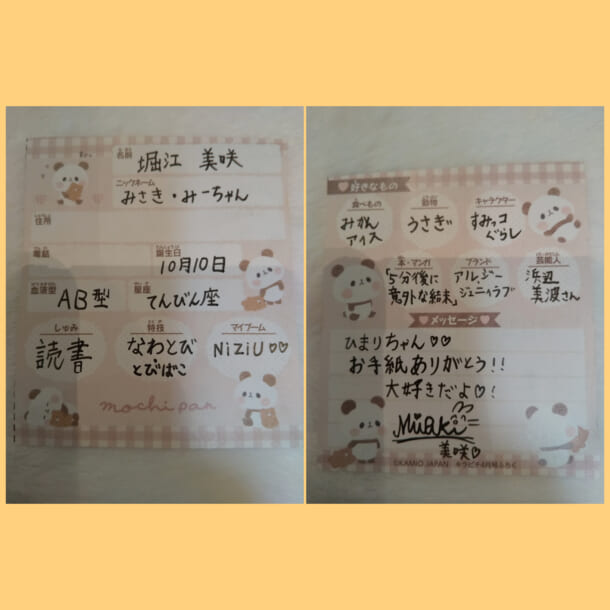 名前
堀江 美咲
ニックネーム
みさき・みーちゃん
住所
電話
誕生日
10月10日
血液型
AB型
星座
てんびん座
しゅみ
読書
特技
なわとび
とびばこ
マイブーム
NiziU♡♡
mochi pan
♥好きなもの
食べもの
みかん
アイス
動物
うさぎ
キャラクター
すみッコ
ぐらし
本・マンガ
「5分後に
意外な結末」
ブランド
アルジー
ジェニィラブ
芸能人
浜辺
美波さん
♥メッセージ♥
ひまりちゃん♡♡
お手紙ありがとう!!
大好きだよ♡!
Misaki
美咲♡
©KAMIO JAPAN キラピチ4月号ふろく